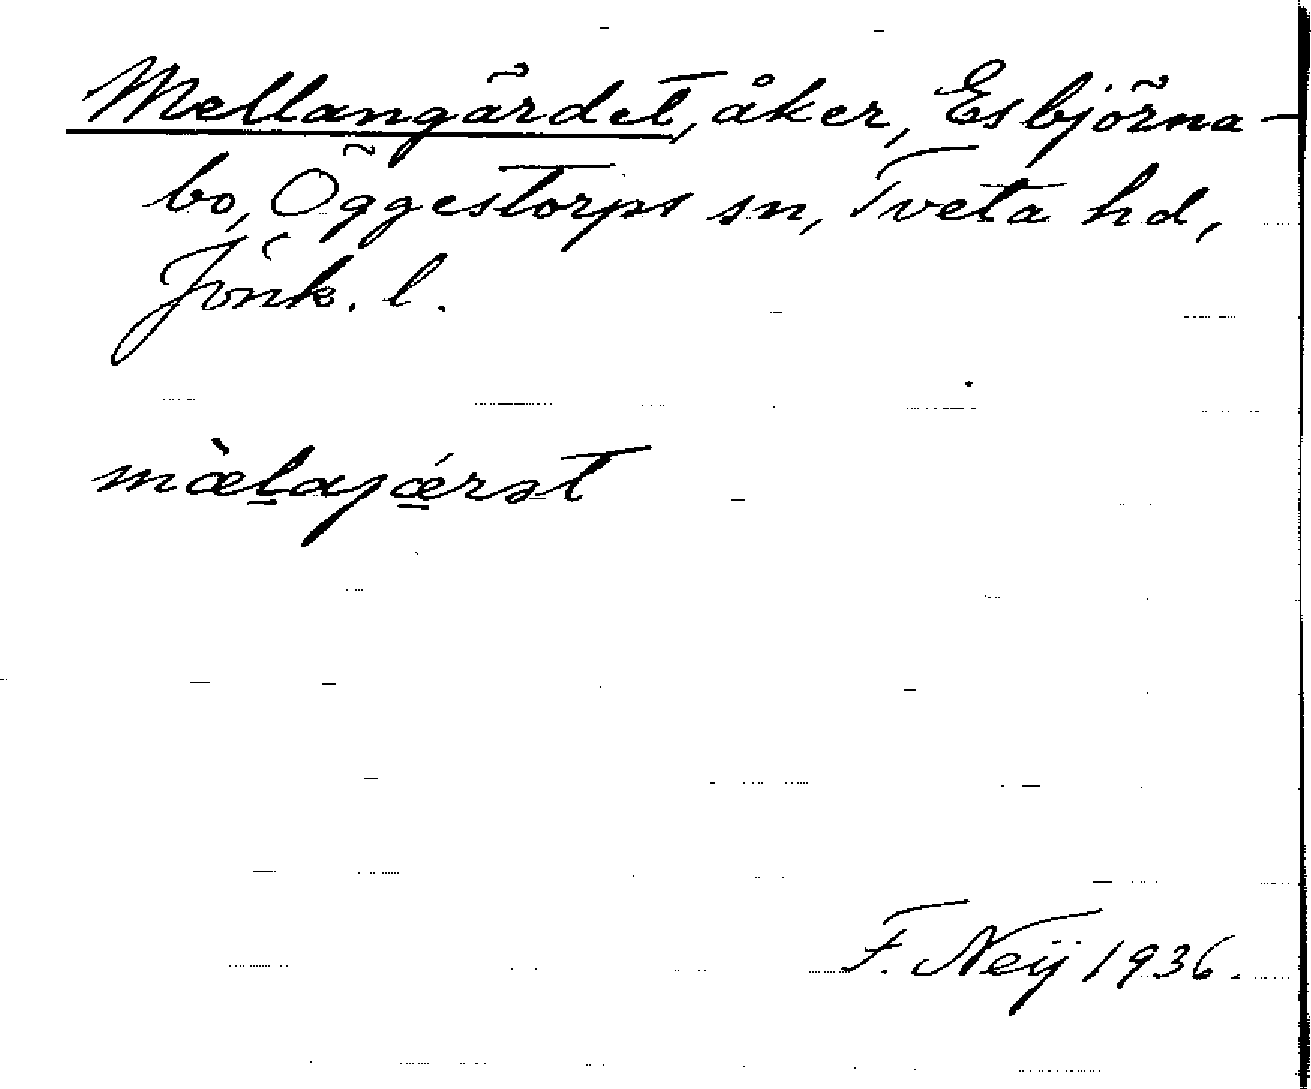 Mellangärdet, åker, Esbjörna-
bo, Öggestorps sn, Tveta hd,
Jönk. l.
mæ̀l̠ajǽ̠rət
F. Neij 1936.